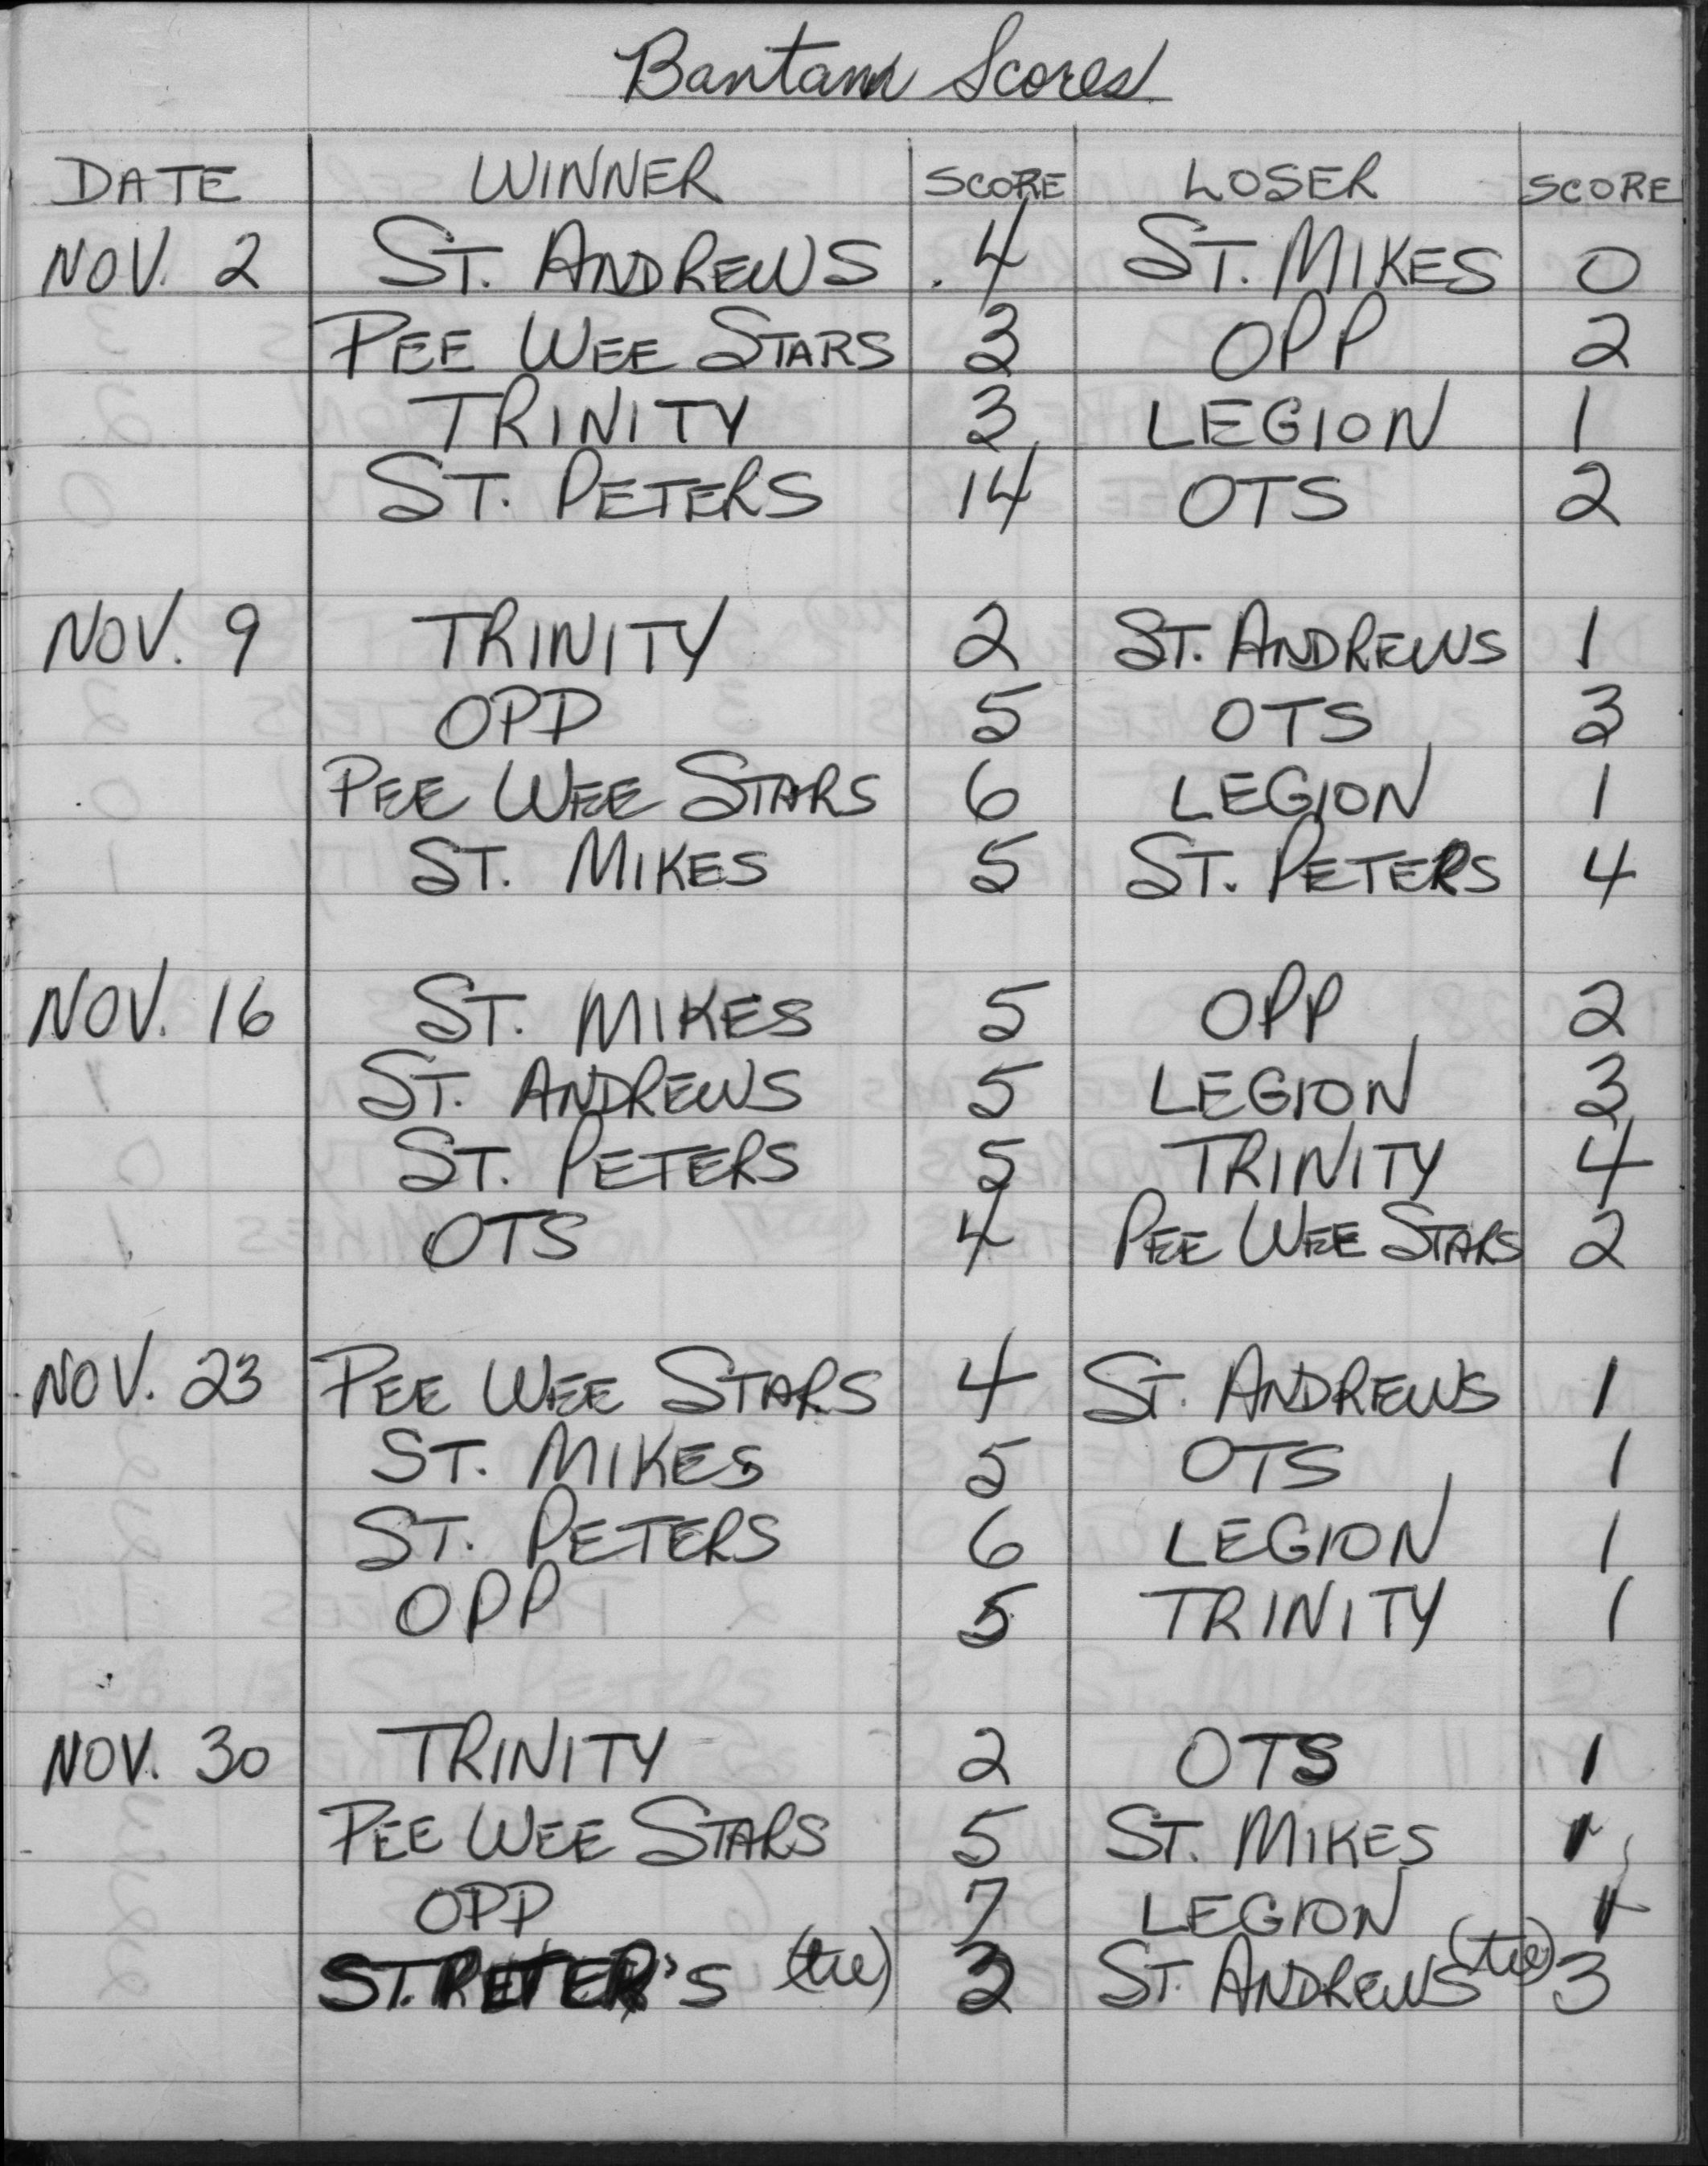 Bantam Scores
DATE WINNER SCORE LOSER SCORE
NOV. 2 ST. ANDREWS 4 ST. MIKES 0
PEE WEE STARS 3 OPP 2
TRINITY 3 LEGION 1
ST. PETERS 14 OTS 2
NOV. 9 TRINITY 2 ST. ANDREWS 1
OPP 5 OTS 3
PEE WEE STARS 6 LEGION 1
ST. MIKES 5 ST. PETERS 4
NOV. 16 ST. MIKES 5 OPP 2
ST. ANDREWS 5 LEGION 3
ST. PETERS 5 TRINITY 4
OTS 4 PEE WEE STARS 2
NOV. 23 PEE WEE STARS 4 ST. ANDREWS 1
ST. MIKES 5 OTS 1
ST. PETERS 6 LEGION 1
OPP 5 TRINITY 1
NOV. 30 TRINITY 2 OTS 1
PEE WEE STARS 5 ST. MIKES 1
OPP 7 LEGION 1
ST. PETER'S (tie) 3 ST. ANDREWS (tie) 3